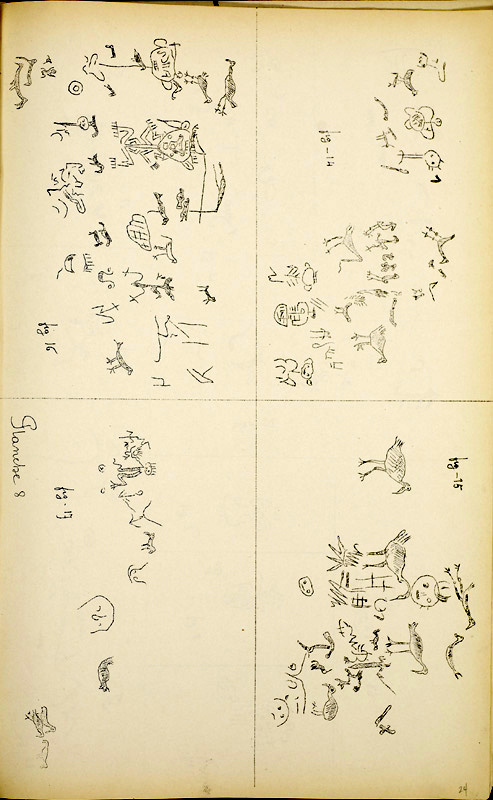 Planche 8
fig-14
fig-15
fig 16
fig-17
24